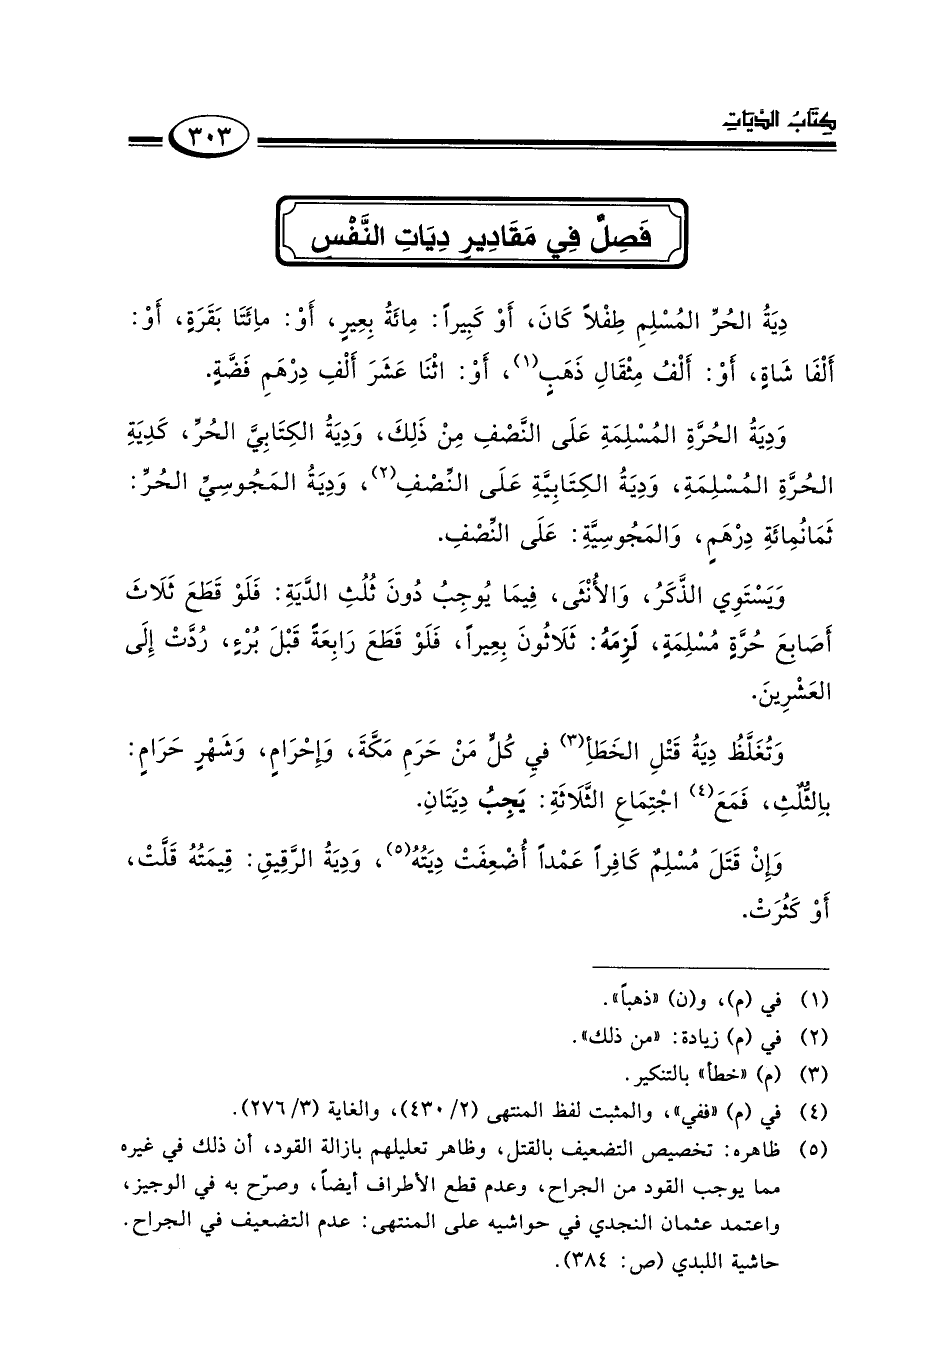 كِتَابُ الدِّيَاتِ
٣٠٣
فَصِلٌ فِي مَقَادِيرِ دِيَاتِ النَّفْسِ
دِيَةُ الحُرِّ المُسْلِمِ طِفْلاً كَانَ، أَوْ كَبِيراً: مِائَةُ بِعِيرٍ، أَوْ: مِائَتَا بَقَرَةٍ، أَوْ:
أَلْفَا شَاةٍ، أَوْ: أَلْفُ مِثْقَال ذَهَبٍ(١)، أَوْ: اثْنَا عَشَرَ أَلْفِ دِرْهَمِ فَضَّةٍ.
وَدِيَةُ الحُرَّةِ المُسْلِمَةِ عَلَى النَّصْفِ مِنْ ذَلِكَ، وَدِيَةُ الكِتَابِيَّ الحُرِّ، كَدِيَةِ
الحُرَّةِ المُسْلِمَةِ، وَدِيَةُ الكِتَابِيَّةِ عَلَى النِّصْفِ(٢)، وَدِيَةُ المَجُوسِيِّ الحُرِّ:
ثَمَانُمِائَةِ دِرْهَمٍ، وَالمَجُوسِيَّةِ: عَلَى النِّصْفِ.
وَيَسْتَوِي الذَّكَرُ، وَالأُنْثَى، فِيمَا يُوجِبُ دُونَ ثُلُثِ الدَّيَةِ: فَلَوْ قَطَعَ ثَلَاثَ
أَصَابِعَ حُرَّةٍ مُسْلِمَةٍ، لَزِمَهُ: ثَلَاثُونَ بَعِيراً، فَلَوْ قَطَعَ رَابِعَةً قَبْلَ بُرْءٍ، رُدَّتْ إِلَى
العَشْرِينَ.
وَتُغَلَّظُ دِيَةُ قَتْلِ الخَطَأِ(٣) فِي كُلٍّ مَنْ حَرَمِ مَكَّةَ، وَإِحْرَامٍ، وَشَهْرٍ حَرَامٍ:
بِالثُّلُثِ، فَمَعَ(٤) اجْتِمَاعِ الثَّلَاثَةِ: يَجِبُ دِيَتَانِ.
وَإِنْ قَتَلَ مُسْلِمٌ كَافِراً عَمْداً أُضْعِفَتْ دِيَتُهُ(٥)، وَدِيَةُ الرَّقِيقِ: قِيمَتُهُ قَلَّتْ،
أَوْ كَثُرَتْ.
(١) في (م)، و(ن) «ذهباً».
(٢) في (م) زيادة: «من ذلك».
(٣) (م) «خطأ» بالتنكير.
(٤) في (م) «ففي»، والمثبت لفظ المنتهى (٢/ ٤٣٠)، والغاية (٣/ ٢٧٦).
(٥) ظاهره: تخصيص التضعيف بالقتل، وظاهر تعليلهم بازالة القود، أن ذلك في غيره
مما يوجب القود من الجراح، وعدم قطع الأطراف أيضاً، وصرّح به في الوجيز،
واعتمد عثمان النجدي في حواشيه على المنتهى: عدم التضعيف في الجراح.
حاشية اللبدي (ص: ٣٨٤).